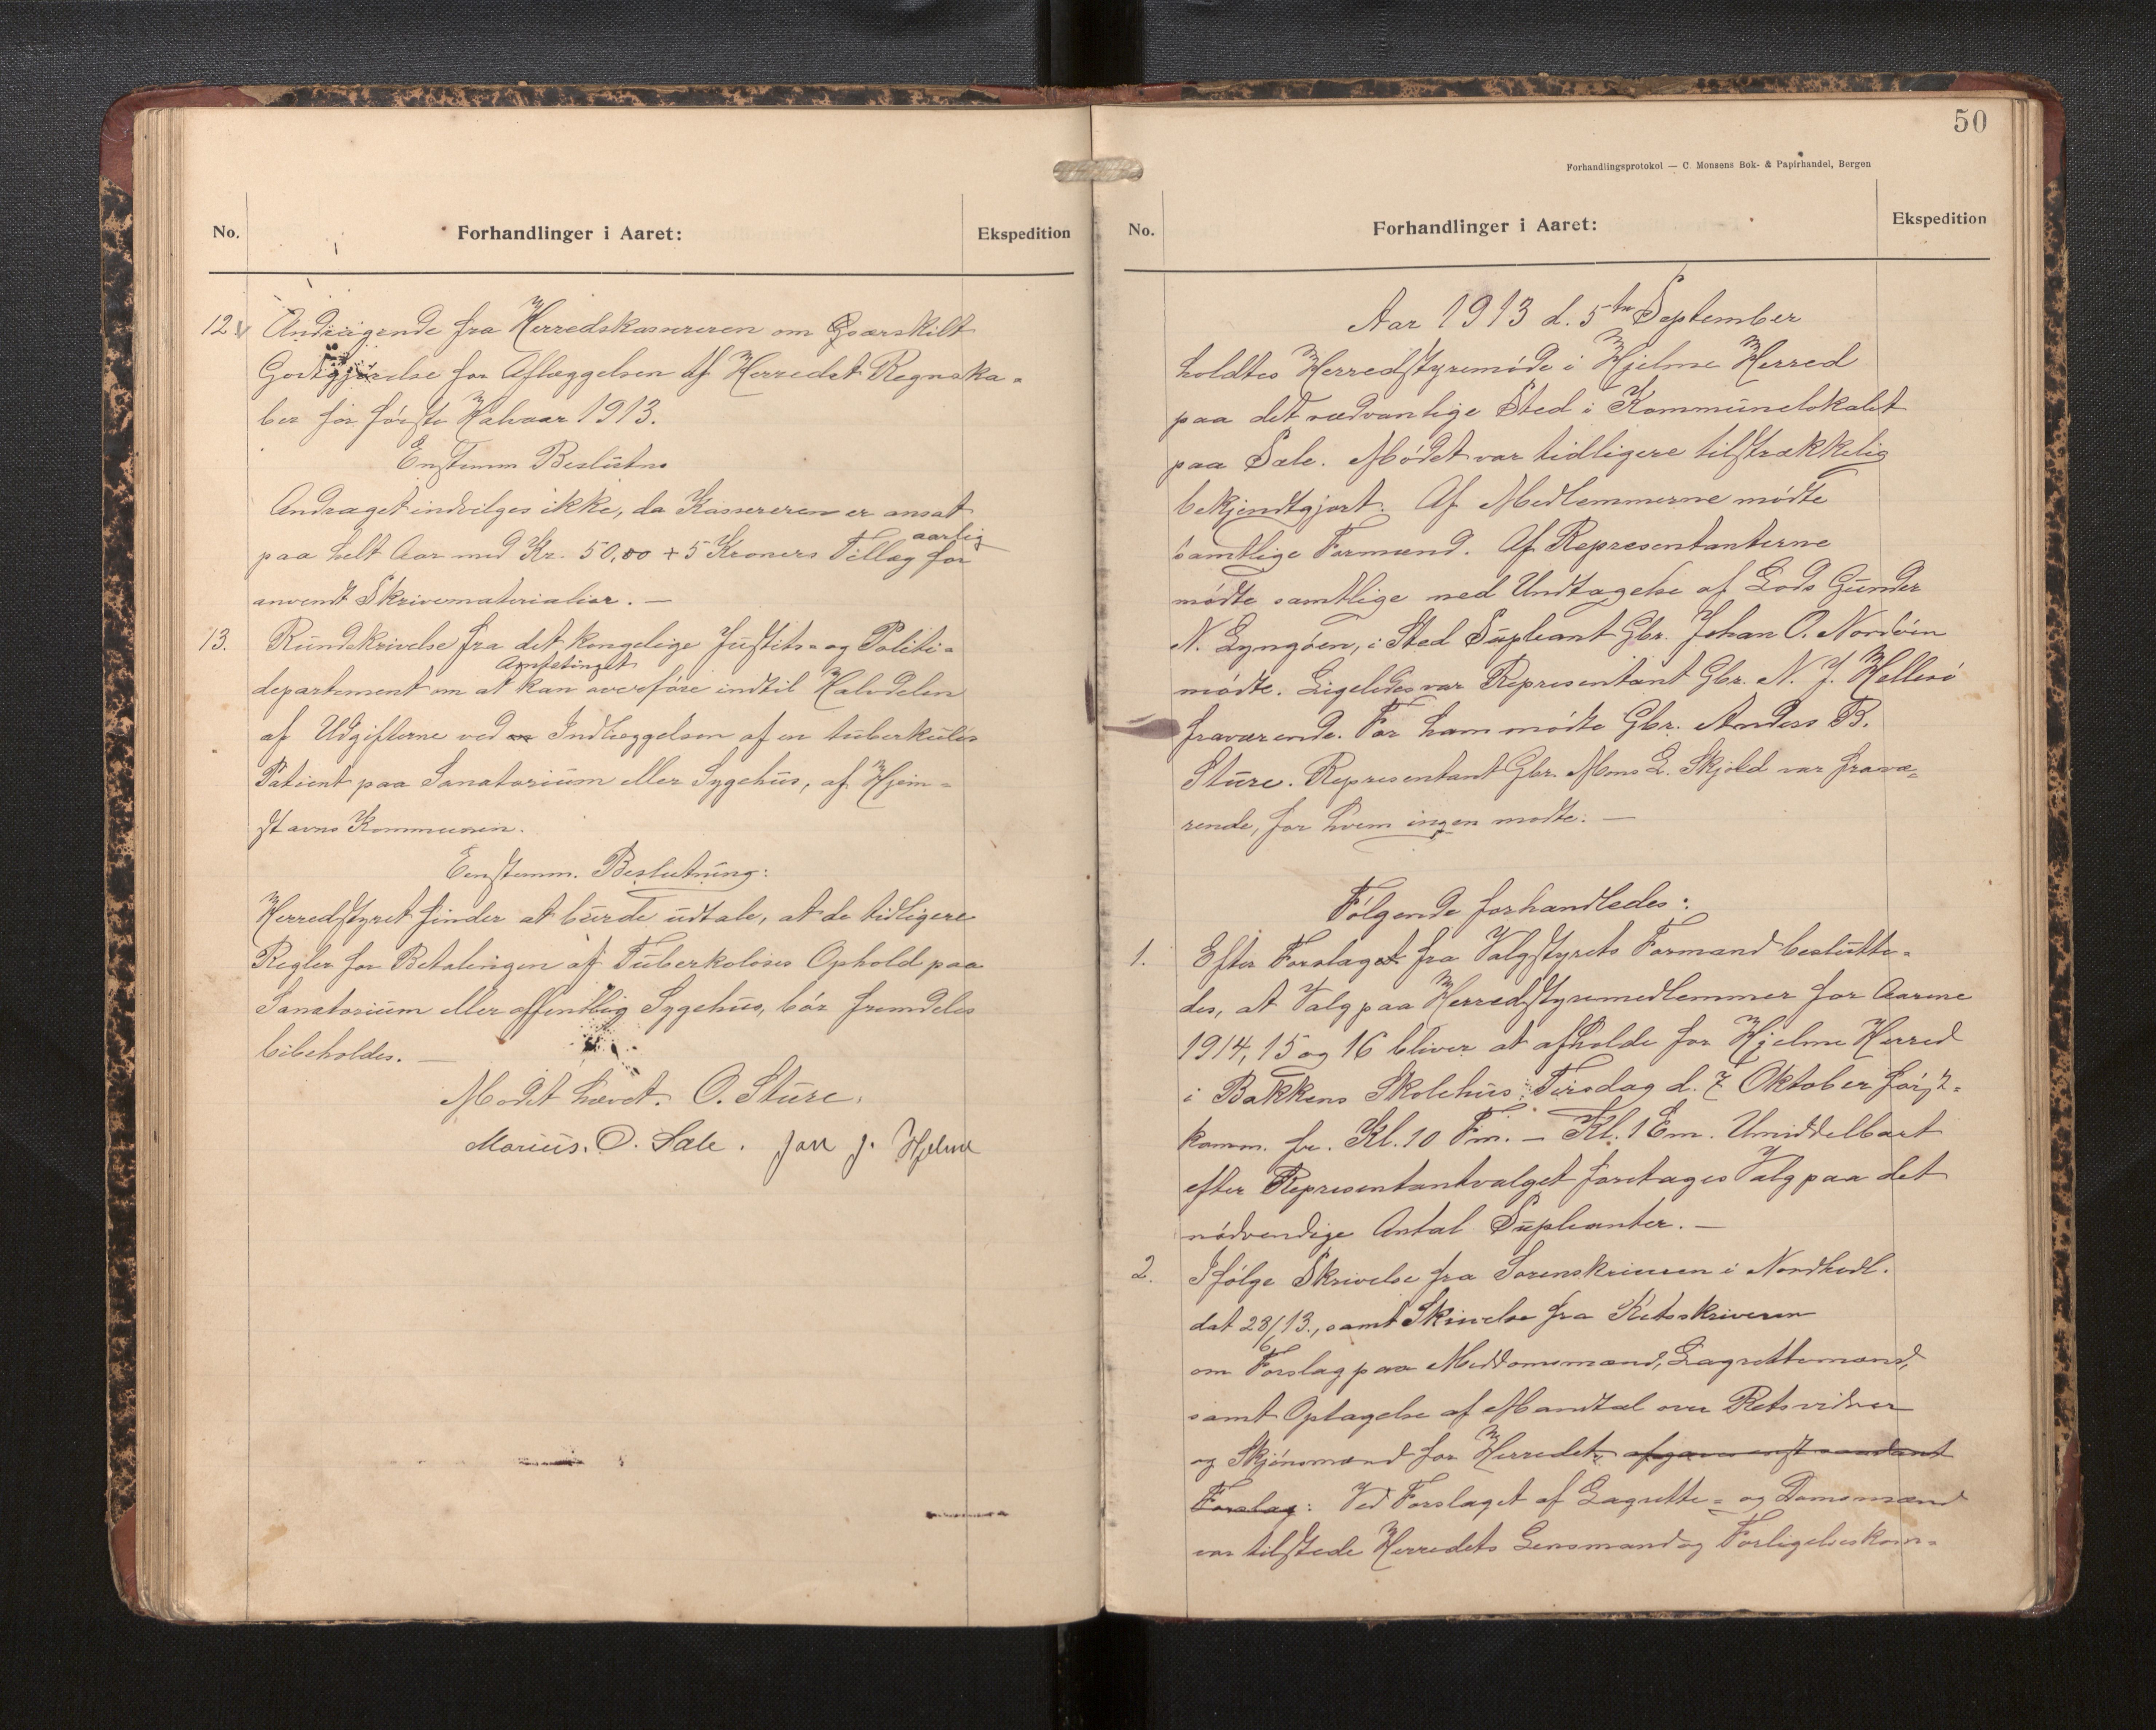 No. Forhandlinger i Aaret: Ekspedition
12 Andragende fra Herredskassereren om særskilt
Godtgjørelse for Aflæggelsen af Herredets Regnska-
ber for første Halvaar 1913.
Enstemm Beslutn.
Andraget indvilges ikke, da Kassereren er ansat
paa helt Aar med Kr. 50,00 + 5 Kroners Tillæg aarlig for
anvendt Skrivematerialier. —
13. Rundskrivelse fra det kongelige Justits- og Politi-
departement om at Amtetinget kan overføre indtil Halvdelen
af Udgifterne ved Indlæggelsen af en tuberkuløs
Patient paa Sanatorium eller Sygehus, af Hjem-
stavns Kommunen.
Eenstemm. Beslutning:
Herredstyret finder at burde udtale, at de tidligere
Regler for Betalingen af Tuberkoløses Ophold paa
Sanatorium eller offentlig Sygehus, bør fremdeles
bibeholdes. —
Mødet hævet. O. Sture.
Marius. O. Sæle. Jon J. Hjelme
50
Forhandlingsprotokol — C. Monsens Bok- & Papirhandel, Bergen
No. Forhandlinger i Aaret: Ekspedition
Aar 1913 d. 5te September
holdtes Herredstyremøde i Hjelme Herred
paa det sædvanlige Sted i Kommunelokalet
paa Sæle. Mødet var tidligere tilstrækkelig
bekjendtgjort. Af Medlemmerne mødte
samtlige Formænd. Af Representanterne
mødte samtlige med Undtagelse af Lods Gunder
N. Lyngøen, i Sted Supleant Gbr. Johan O. Nordvin
mødte. Ligeledes var Representant Gbr. N. J. Hellesø
fraværende. For ham mødte Gbr. Anders B.
Sture. Representant Gbr. Mons L. Skjold var fravæ-
rende, for hvem ingen mødte. —
Følgende forhandledes:
1. Efter Forslaget fra Valgstyrets Formand beslutte-
des, at Valg paa Herredstyremedlemmer for Aarene
1914, 15 og 16 bliver at afholde for Hjelme Herred
i Bakkens Skolehus Tirsdag d. 7 Oktober først-
komm. fr. Kl. 10 Fm. — Kl. 1 Em. Umiddelbart
efter Representantvalget foretages Valg paa det
nødvendige Antal Supleanter. —
2. Ifølge Skrivelse fra Sorenskriveren i Nordhordl.
dat 28/6 13., samt Skrivelse fra Retsskriveren
om Forslag paa Meddomsmænd, Lagrettemænd,
samt Optagelse af Mandtal over Retsvidner
og Skjønsmænd for Herredet,
Forslag: Ved Forslaget af Lagrette- og Domsmænd
var tilstede Herredets Lensmand og Forligelseskom-